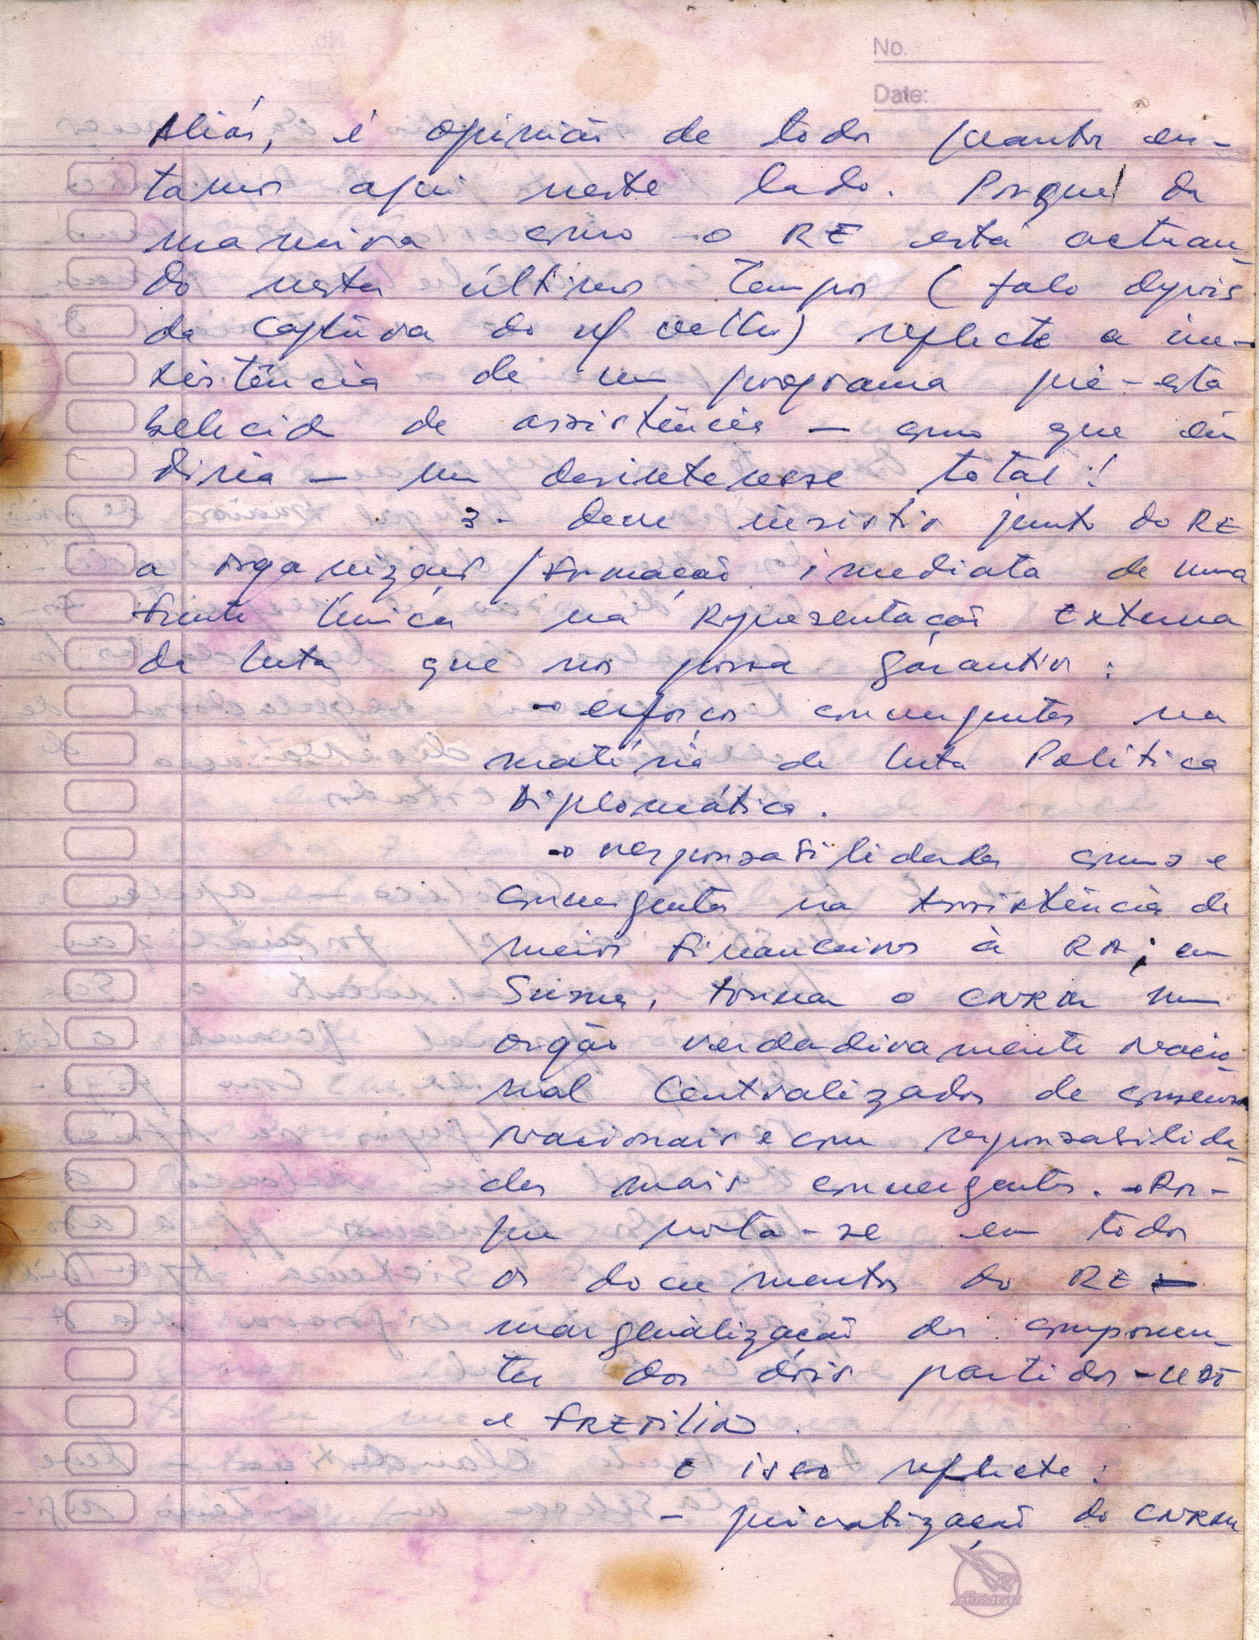 No.
Date:
Aliás, é opinião de todos quantos en-
tamos aqui neste lado. Porque da
maneira como o RE está actuan-
do nestes últimos Tempos (falo depois
da captura do velho) reflecte a ine-
xistência de um programa pré-esta
belecido de assistência – como que eu
diria – um desinteresse total!
3- deve insistir junto do RE
a organização/formação imediata de uma
frente única na Representação Externa
da luta que nos possa garantir:
-o esforços convergentes na
matéria de luta Política
Diplomática.
-o responsabilidades comuns e
convergentes na Assistência de
meios financeiros à RA; em
Suma, tornar o CNRM um
orgão verdadeiramente Nacio-
nal Centralizador de consensos
nacionais e com responsabilida-
des mais convergentes. -Por-
que nota-se em todos
os documentos do RE
marginalização dos componen-
tes dos dois partidos - UDT
e FRETILIN.
E isso reflecte:
- privatização do CNRM